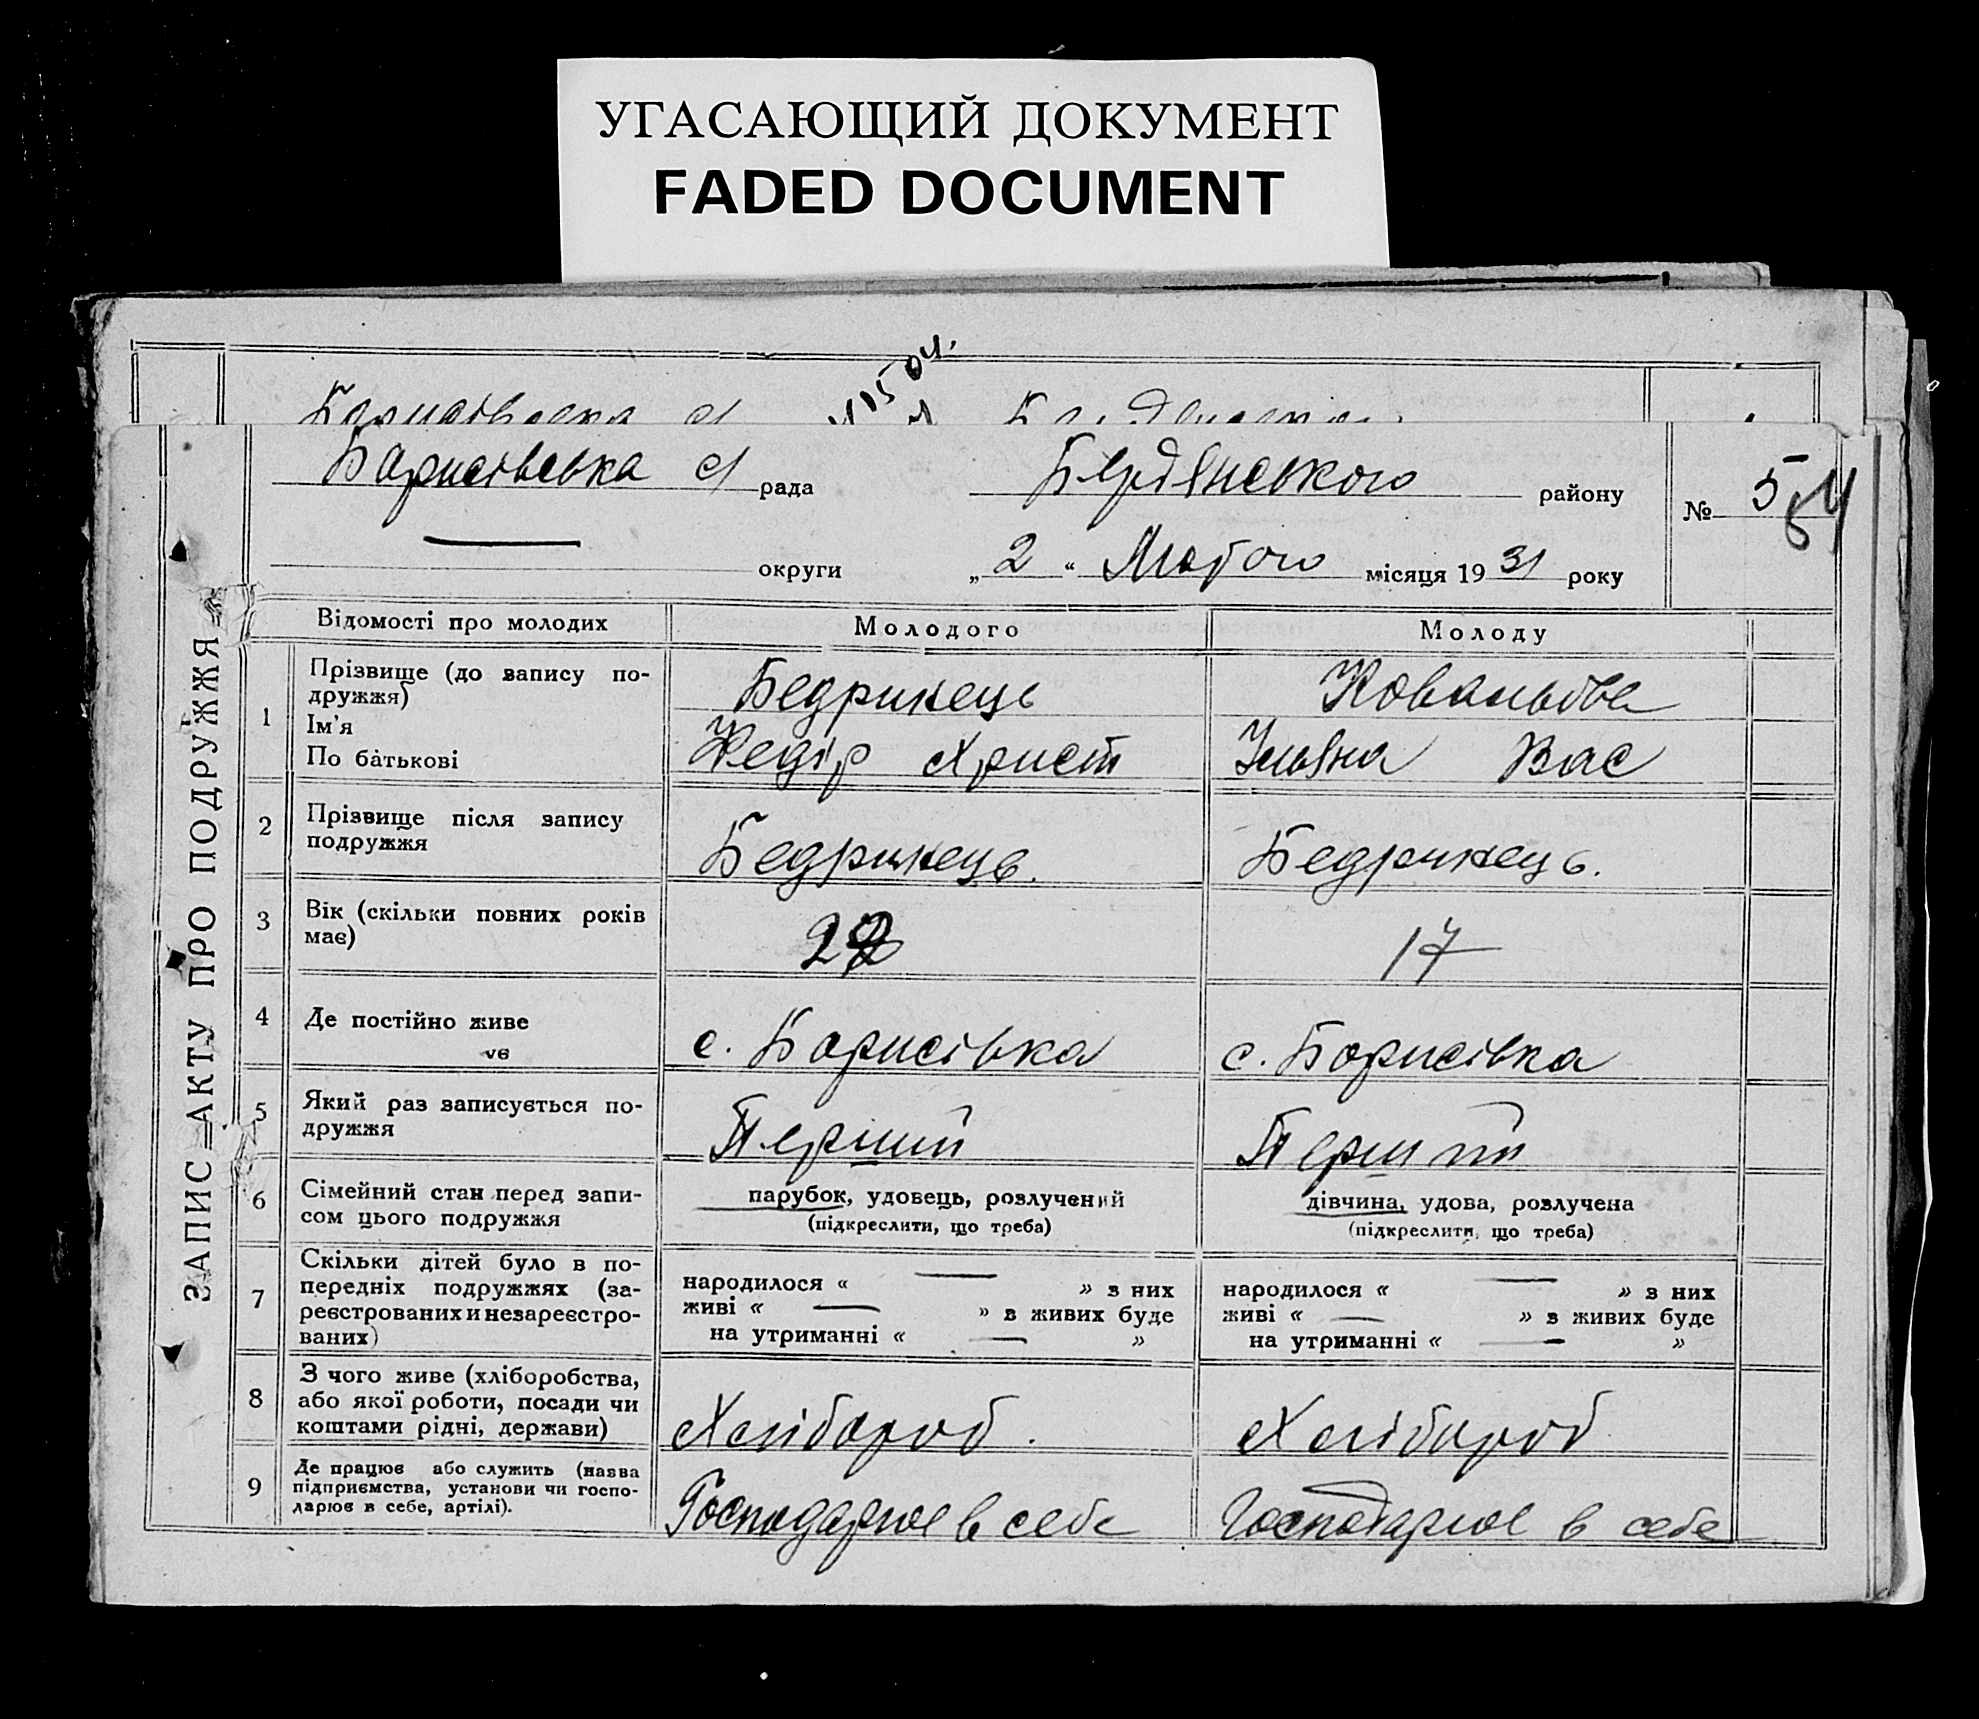 УГАСАЮЩИЙ ДОКУМЕНТ
FADED DOCUMENT
Борисівська с/рада Бердянського району № 5
округи „2“ Лютого місяця 1931 року
ЗАПИС АКТУ ПРО ПОДРУЖЖЯ
Відомості про молодих Молодого Молоду
1 Прізвище (до запису по-
дружжя)
Бедринець Ковальова
Ім'я
По батькові
Федір Христ Ульяна Вас
2 Прізвище після запису
подружжя
Бедринець. Бедринець.
3 Вік (скільки повних років
має)
22 17
4 Де постійно живе
с. Борисівка с. Борисівка
5 Який раз записується по-
дружжя
Перший Перший
6 Сімейний стан перед запи-
сом цього подружжя
парубок, удовець, розлучений
(підкреслити, що треба)
дівчина, удова, розлучена
(підкреслити, що треба)
7 Скільки дітей було в по-
передніх подружжях (за-
реєстрованих и незареєстро-
ваних)
народилося « — » з них
живі « — » з живих буде
на утриманні « — »
народилося « — » з них
живі « — » з живих буде
на утриманні « — »
8 З чого живе (хліборобства,
або якої роботи, посади чи
коштами рідні, держави)
Хлібороб. Хлібороб
9 Де працює або служить (назва
підприємства, установи чи госпо-
дарює в себе, артілі).
Господарює в себе Господарює в себе